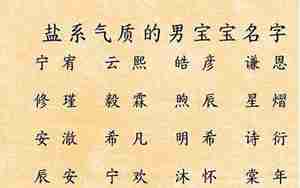 盐系气质的男宝宝名字
宁宥 云熙 皓彦 谦恩
修瑾 毅霖 煦辰 星熠
安澈 希凡 明希 诗衍
辰安 宁欢 沐怀 棠年